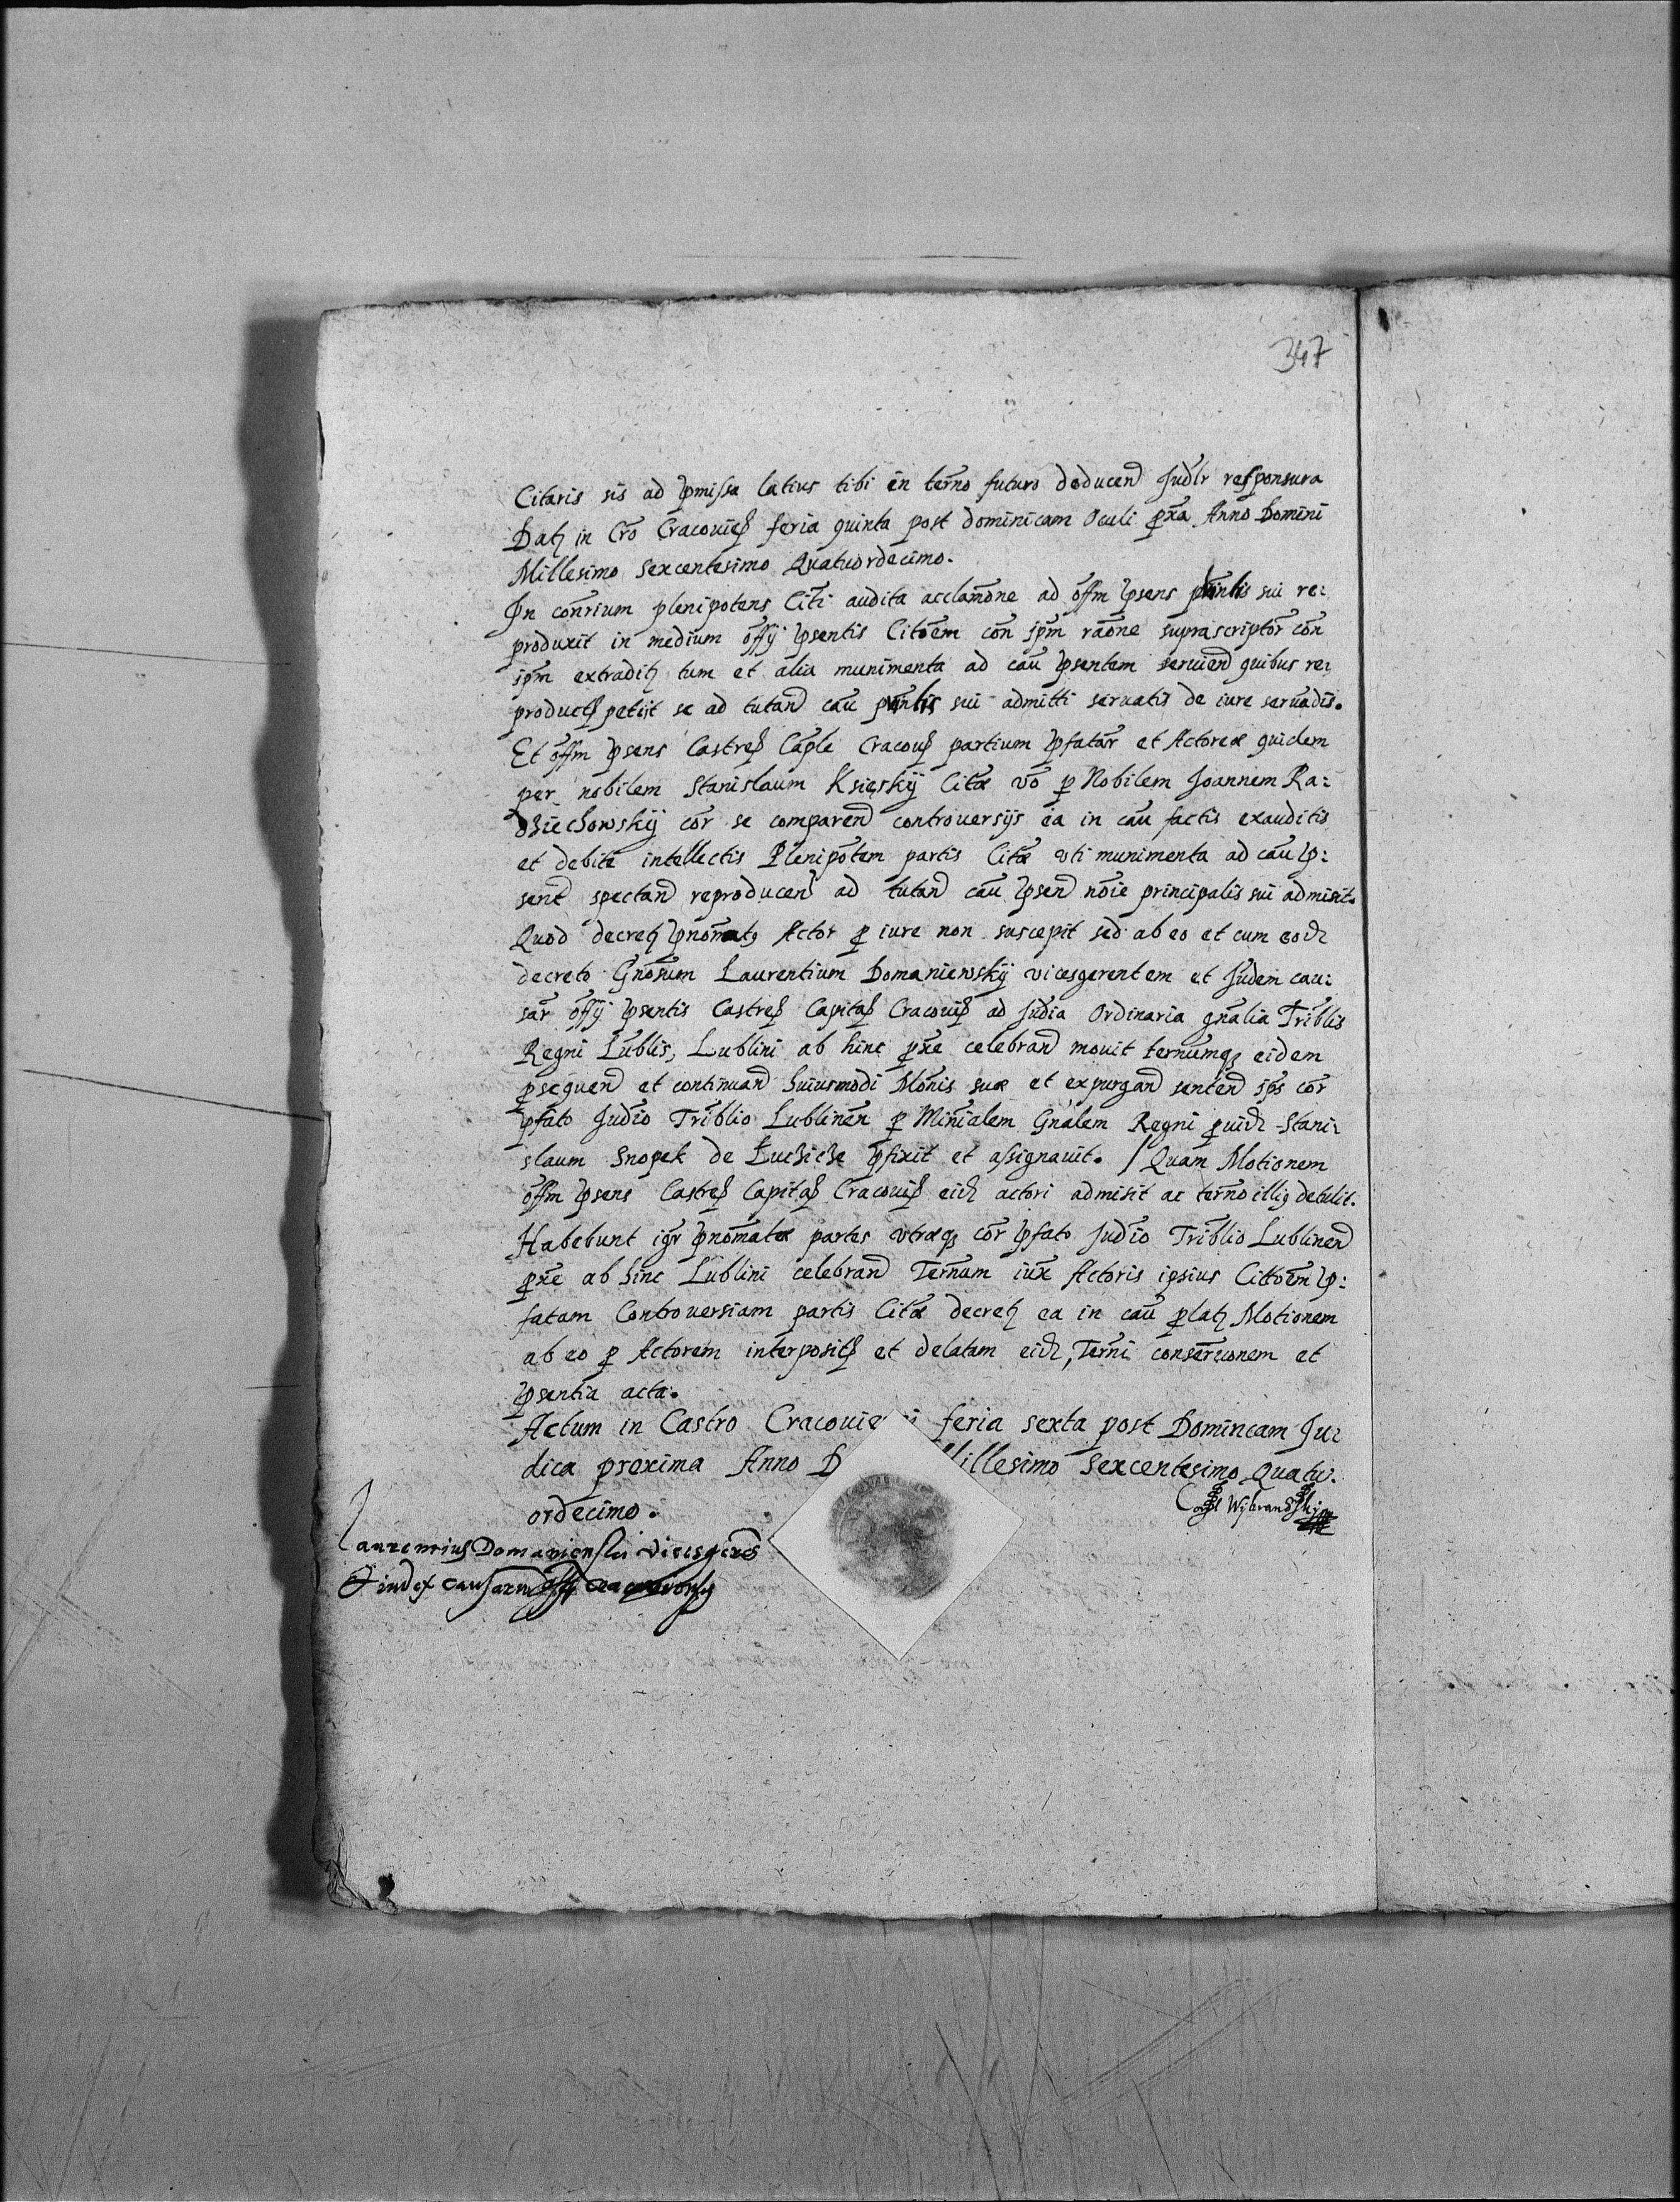 347
Citaris sis ad p̄missa latius tibi in term̄o futuro deducen̄d Jud̄lr responsura
Datꝫ in Cr̄o Cracovień feria quinta post dominicam Oculi p̄x̄a Anno Domini
Millesimo Sexcentesimo Quatuordecimo.
In con̄rium plenipotens Cit̄i audita acclam̄one ad off̄m p̄sens sui re:
produxit in medium off̄ij p̄sentis Cito̅em con̄ ip̄m ra̅one suprascriptor̄ con̄
ip̄m extraditꝫ tum et alia munimenta ad cau̅ p̄sentem servien̄d quibus re:
productꝭ petijt se ad tutan̄d cau̅ sui admitti servatis de iure servādis.
Et off̄m p̄sens Castreñ Cap̄le Cracouñ partium p̄fatar̄ et Actoreæ quidem
per nobilem Stanislaum Księskij Citǣ vō p̱ Nobilem Joannem Ra:
dziechowskij cor̄ se comparen̄d controversijs ea in cau̅ factis exauditis
et debite intellectis Plenipōtem partis Citǣ vti munimenta ad cau̅ p̄:
sent̄ spectan̄d reproducen̄ ad tutan̄d cau̅ p̄sen̄d no̅ie principalis sui admisit.
Quod decretꝫ p̄nom̄atꝰ Actor p̱ iure non suscepit sed ab eo et cum eod̄
decreto Gn̄osum Laurentium Domaniewskij vicesgerentem et Jud̄em cau:
sar̄ off̄ij p̄sentis Castreñ Capitañ Cracovień ad Jud̄ia Ordinaria gn̄alia Trib̄lis
Regni Lub̄lis, Lublini ab hinc p̄x̄e celebran̄d movit ternumqꝫ eidem
p̱sequen̄d et continuan̄d huiusmodi Mo̅nis suæ et expurgan̄d senten̄d ip̄s cor̄
p̄fato Jud̄io Trib̄lio Lublinen̄ p̱ Mini̅alem Gn̄alem Regni p̱uid̄ Stani:
slaum Snopek de Luchiche p̄fixit et assignavit. / Quam Motionem
off̄m p̄sens Castreñ Capitañ Cracovień eid̄ actori admisit ac term̄o illiꝰ detulit.
Habebunt ig̅r p̄nom̄atæ partes vtræqꝫ cor̄ p̄fato Jud̄io Trib̄lio Lublinen̄d
p̄x̄e ab hinc Lublini celebran̄d Term̄um iux̄ Actoris ipsius Citto̅em p̄:
fatam Controversiam partis Citǣ decretꝫ ea in cau̅ p̱latꝫ Motionem
ab eo p̱ Actorem interpositꝭ et delatam eid̄, Term̄i conserv̄onem et
p̄sentia acta.
Actum in Castro Cracovie feria sexta post Dominicam Ju:
dica proxima Anno D illesimo Sexcentesimo Quatu:
ordecimo.
Wybranskij
Laurentius Domaniewski vicesgerēs
& iudex causarum offij